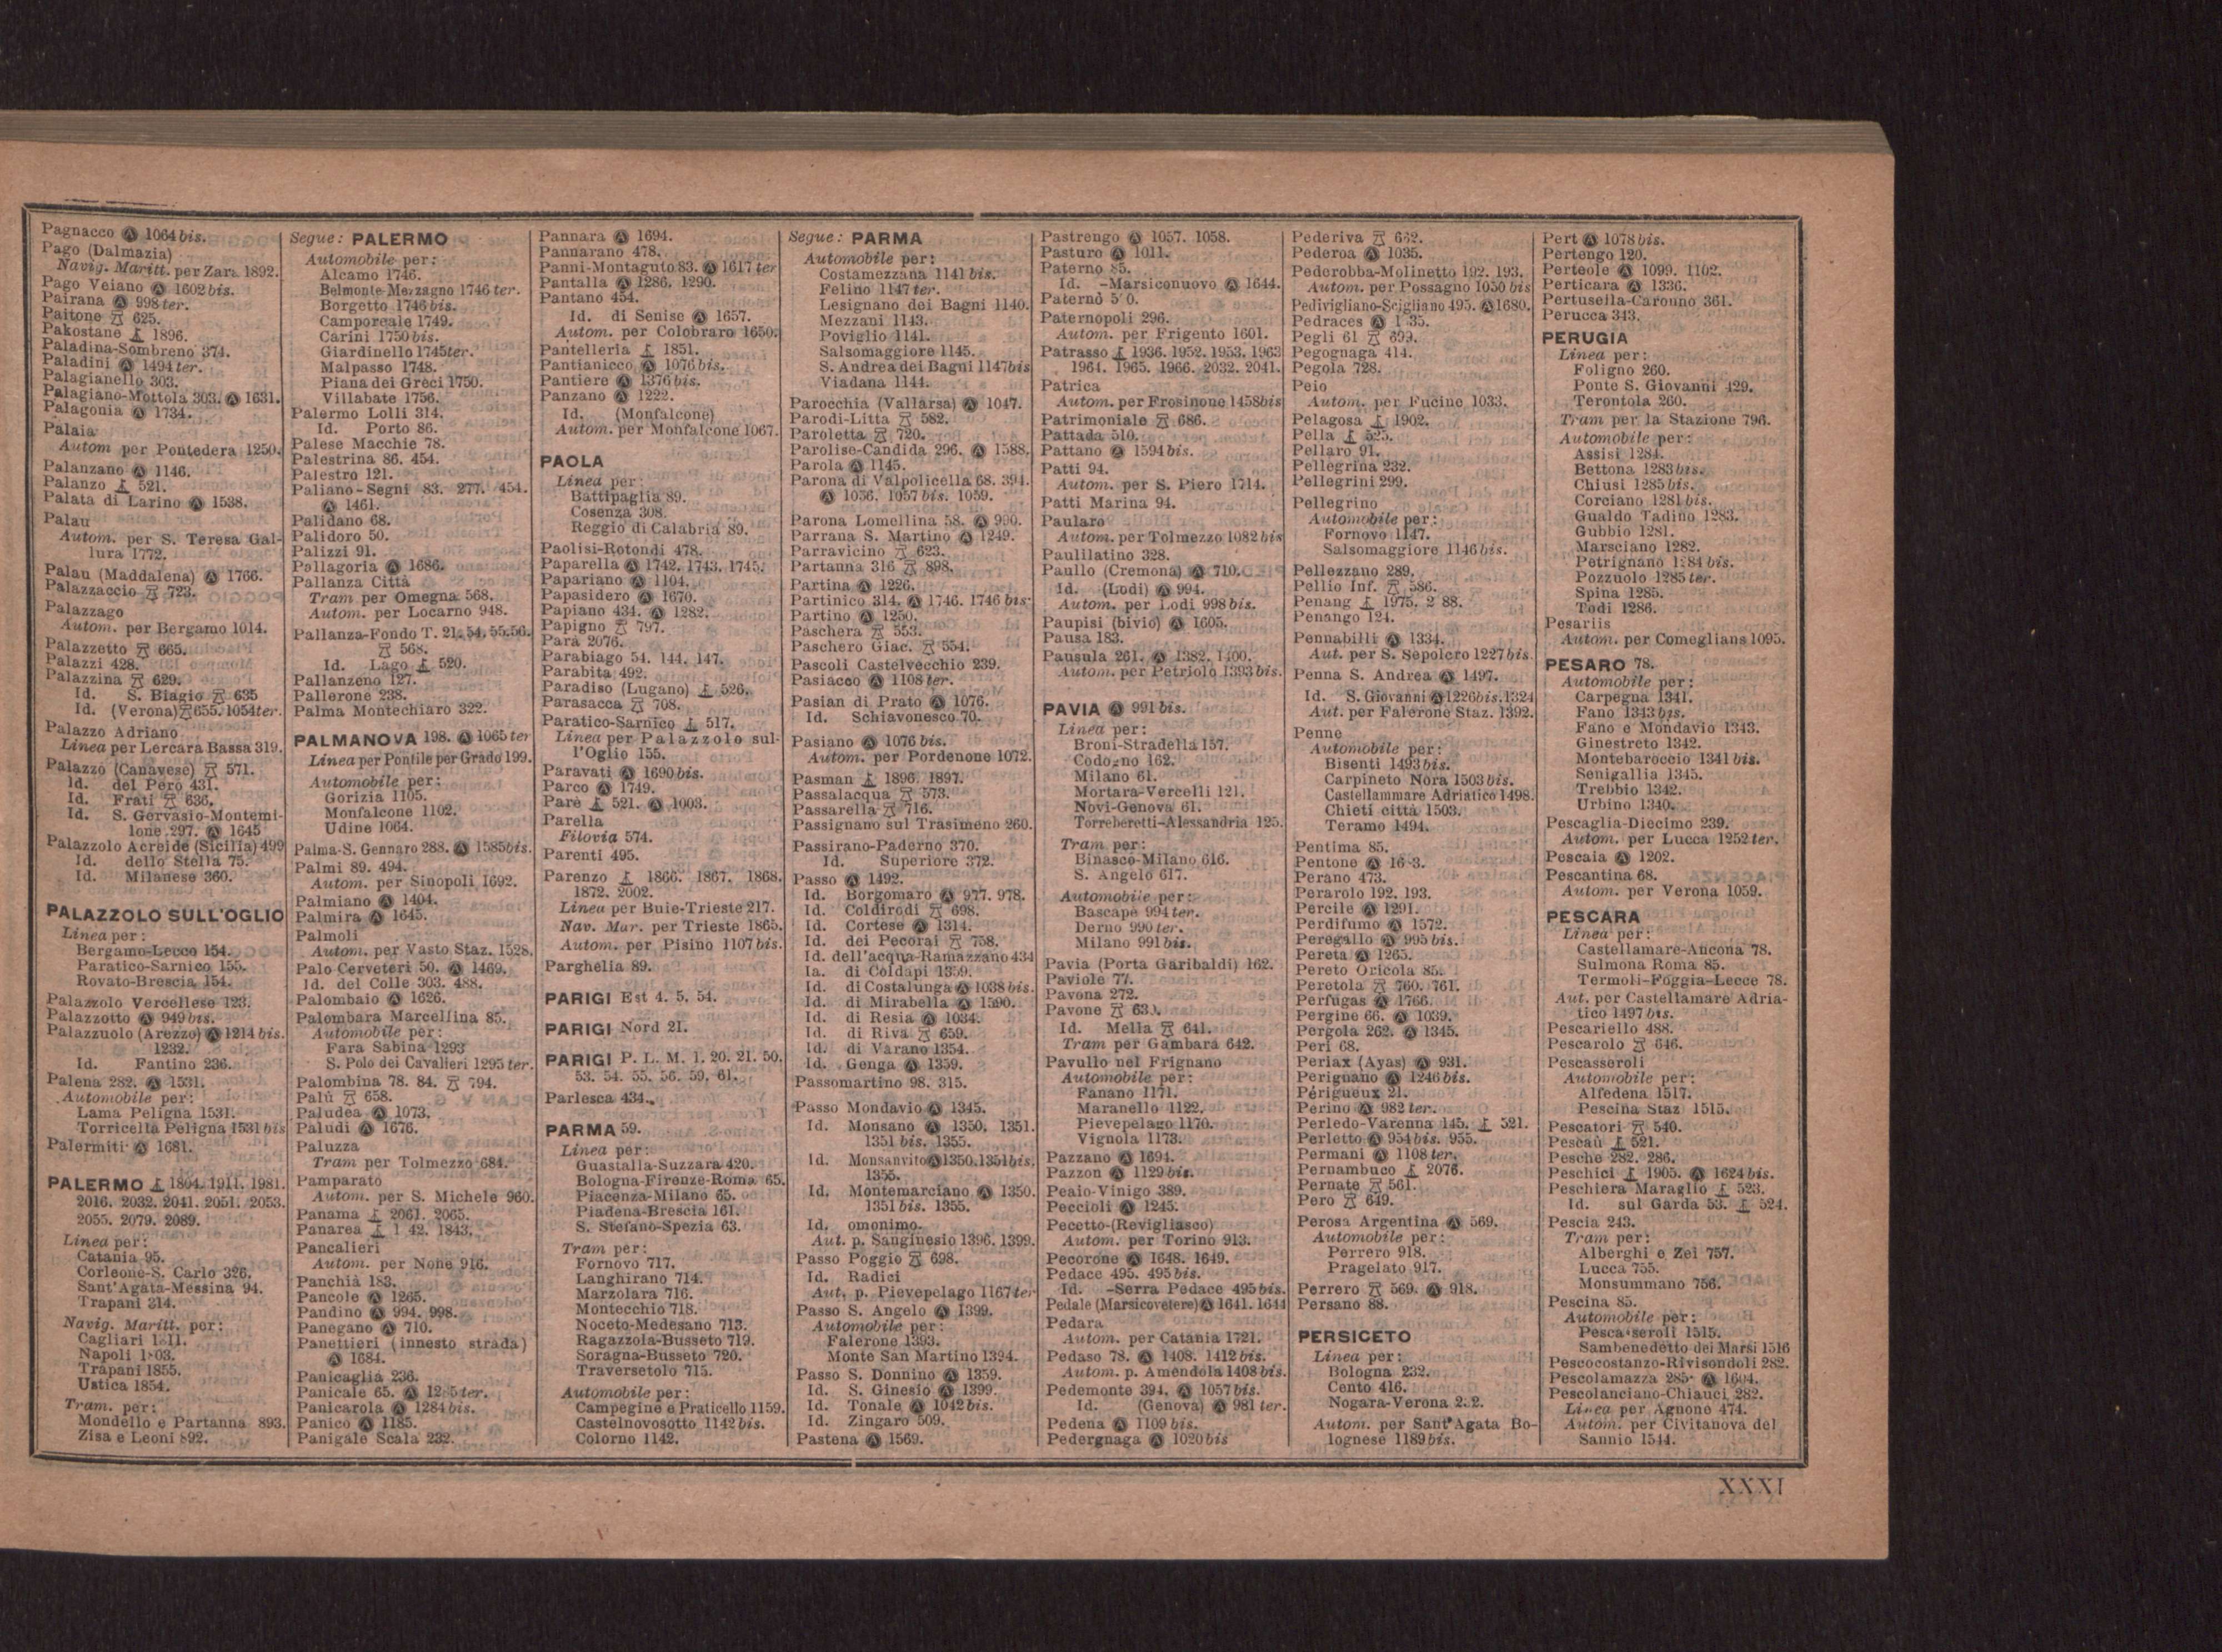 Pagnacco Ⓐ 1064 bis.
Pago (Dalmazia)
Navig. Maritt. per Zara 1892.
Pago Veiano Ⓐ 1602 bis.
Pairana Ⓐ 998 ter.
Paitone 625.
Pakostane 1896.
Paladina-Sombreno 374.
Paladini Ⓐ 1494 ter.
Palagianello 303.
Palagiano-Mottola 303. Ⓐ 1631.
Palagonia Ⓐ 1734.
Palaia
Autom per Pontedera 1250.
Palanzano Ⓐ 1146.
Palanzo 521.
Palata di Larino Ⓐ 1538.
Palau
Autom. per S. Teresa Gal-
lura 1772.
Palau (Maddalena) Ⓐ 1766.
Palazzaccio 723.
Palazzago
Autom. per Bergamo 1014.
Palazzetto 665.
Palazzi 428.
Palazzina 629.
Id. S. Biagio 635
Id. (Verona) 655. 1054 ter.
Palazzo Adriano
Linea per Lercara Bassa 319.
Palazzo (Canavese) 571.
Id. del Pero 431.
Id. Frati 636.
Id. S. Gervasio-Montemi-
lone 297. Ⓐ 1645
Palazzolo Acreide (Sicilia) 499
Id. dello Stella 75.
Id. Milanese 360.
PALAZZOLO SULL'OGLIO
Linea per:
Bergamo-Lecco 154.
Paratico-Sarnico 155.
Rovato-Brescia 154.
Palazzolo Vercellese 123.
Palazzotto Ⓐ 949 bis.
Palazzuolo (Arezzo) Ⓐ 1214 bis.
1232.
Id. Fantino 236.
Palena 282. Ⓐ 1531.
Automobile per:
Lama Peligna 1531.
Torricella Peligna 1531 bis
Palermiti Ⓐ 1681.
PALERMO 1804. 1911. 1981.
2016. 2032. 2041. 2051. 2053.
2055. 2079. 2089.
Linea per:
Catania 95.
Corleone-S. Carlo 326.
Sant'Agata-Messina 94.
Trapani 314.
Navig. Maritt. per:
Cagliari
Napoli
Trapani 1855.
Ustica 1854.
Tram. per:
Mondello e Partanna 893.
Zisa e Leoni 892.
Segue: PALERMO
Automobile per:
Alcamo 1746.
Belmonte-Mezzagno 1746 ter.
Borgetto 1746 bis.
Camporeale 1749.
Carini 1750 bis.
Giardinello 1745 ter.
Malpasso 1748.
Piana dei Greci 1750.
Villabate 1756.
Palermo Lolli 314.
Id. Porto 86.
Palese Macchie 78.
Palestrina 86. 454.
Palestro 121.
Paliano-Segni 83. 277. 454.
Ⓐ 1461.
Palidano 68.
Palidoro 50.
Palizzi 91.
Pallagoria Ⓐ 1686.
Pallanza Città
Tram per Omegna 568.
Autom. per Locarno 948.
Pallanza-Fondo T. 21. 54. 55. 56.
568.
Id. Lago 520.
Pallanzeno 127.
Pallerone 238.
Palma Montechiaro 322.
PALMANOVA 198. Ⓐ 1065 ter
Linea per Pontile per Grado 199.
Automobile per:
Gorizia 1105.
Monfalcone 1102.
Udine 1064.
Palma-S. Gennaro 288. Ⓐ 1585 bis.
Palmi 89. 494.
Autom. per Sinopoli 1692.
Palmiano Ⓐ 1404.
Palmira Ⓐ 1645.
Palmoli
Autom. per Vasto Staz. 1528.
Palo Cerveteri 50. Ⓐ 1469.
Id. del Colle 303. 488.
Palombaio Ⓐ 1626.
Palombara Marcellina 85.
Automobile per:
Fara Sabina 1293
S. Polo dei Cavalieri 1295 ter.
Palombina 78. 84. 794.
Palù 658.
Paludea Ⓐ 1073.
Paludi Ⓐ 1676.
Paluzza
Tram per Tolmezzo 684.
Pamparato
Autom. per S. Michele 960.
Panama 2061. 2065.
Panarea 1843.
Pancalieri
Autom. per None 916.
Panchià 183.
Pancole Ⓐ 1265.
Pandino Ⓐ 994. 998.
Panegano Ⓐ 710.
Panettieri (innesto strada)
Ⓐ 1684.
Panicaglia 236.
Panicale 65. Ⓐ
Panicarola Ⓐ 1284 bis.
Panico Ⓐ 1185.
Panigale Scala 232.
Pannara Ⓐ 1694.
Pannarano 478.
Panni-Montaguto 83. Ⓐ 1617 ter
Pantalla Ⓐ 1286. 1290.
Pantano 454.
Id. di Senise Ⓐ 1657.
Autom. per Colobraro 1650.
Pantelleria 1851.
Pantianicco Ⓐ 1076 bis.
Pantiere Ⓐ 1376 bis.
Panzano Ⓐ 1222.
Id. (Monfalcone)
Autom. per Monfalcone 1067.
PAOLA
Linea per:
Battipaglia 89.
Cosenza 308.
Reggio di Calabria 89.
Paolisi-Rotondi 478.
Paparella Ⓐ 1742. 1743. 1745.
Papariano Ⓐ 1104.
Papasidero Ⓐ 1670.
Papiano 434. Ⓐ 1282.
Papigno 797.
Parà 2076.
Parabiago 54. 144. 147.
Parabita 492.
Paradiso (Lugano) 526.
Parasacca 708.
Paratico-Sarnico 517.
Linea per Palazzolo sul-
l'Oglio 155.
Paravati Ⓐ 1690 bis.
Parco Ⓐ 1749.
Parè 521. Ⓐ 1003.
Parella
Filovia 574.
Parenti 495.
Parenzo 1866. 1867. 1868.
1872. 2002.
Linea per Buie-Trieste 217.
Nav. Mar. per Trieste 1865.
Autom. per Pisino 1107 bis.
Parghelia 89.
PARIGI Est 4. 5. 54.
PARIGI Nord 21.
PARIGI P. L. M. 1. 20. 21. 50.
53. 54. 55. 56. 59. 61.
Parlesca 434.
PARMA 59.
Linea per:
Guastalla-Suzzara 420.
Bologna-Firenze-Roma 65.
Piacenza-Milano 65.
Piadena-Brescia 161.
S. Stefano-Spezia 63.
Tram per:
Fornovo 717.
Langhirano 714.
Marzolara 716.
Montecchio 718.
Noceto-Medesano 713.
Ragazzola-Busseto 719.
Soragna-Busseto 720.
Traversetolo 715.
Automobile per:
Campegine e Praticello 1159.
Castelnovosotto 1142 bis.
Colorno 1142.
Segue: PARMA
Automobile per:
Costamezzana 1141 bis.
Felino 1147 ter.
Lesignano dei Bagni 1140.
Mezzani 1143.
Poviglio 1141.
Salsomaggiore 1145.
S. Andrea dei Bagni 1147 bis
Viadana 1144.
Parocchia (Vallarsa) Ⓐ 1047.
Parodi-Litta 582.
Paroletta 720.
Parolise-Candida 296. Ⓐ 1588.
Parola Ⓐ 1145.
Parona di Valpolicella 68. 394.
Ⓐ 1056. 1057 bis. 1059.
Parona Lomellina 58. Ⓐ 990.
Parrana S. Martino Ⓐ 1249.
Parravicino 623.
Partanna 316 898.
Partina Ⓐ 1226.
Partinico 314. Ⓐ 1746. 1746 bis
Partino Ⓐ 1250.
Paschera 553.
Paschero Giac. 554.
Pascoli Castelvecchio 239.
Pasiacco Ⓐ 1108 ter.
Pasian di Prato Ⓐ 1076.
Id. Schiavonesco 70.
Pasiano Ⓐ 1076 bis.
Autom. per Pordenone 1072.
Pasman 1896. 1897.
Passalacqua 573.
Passarella 716.
Passignano sul Trasimeno 260.
Passirano-Paderno 370.
Id. Superiore 372.
Passo Ⓐ 1492.
Id. Borgomaro Ⓐ 977. 978.
Id. Coldirodi 698.
Id. Cortese Ⓐ 1314.
Id. dei Pecorai 758.
Id. dell'acqua-Ramazzano 434
Id. di Coldapi 1359.
Id. di Costalunga Ⓐ 1038 bis.
Id. di Mirabella Ⓐ 1590.
Id. di Resia Ⓐ 1034.
Id. di Riva 659.
Id. di Varano 1354.
Id. Genga Ⓐ 1359.
Passomartino 98. 315.
Passo Mondavio Ⓐ 1345.
Id. Monsano Ⓐ 1350. 1351.
1351 bis. 1355.
Id. Monsanvito Ⓐ 1350. 1351 bis.
1355.
Id. Montemarciano Ⓐ 1350.
1351 bis. 1355.
Id. omonimo.
Aut. p. Sanginesio 1396. 1399.
Passo Poggio 698.
Id. Radici
Aut. p. Pievepelago 1167 ter
Passo S. Angelo Ⓐ 1399.
Automobile per:
Falerone 1393.
Monte San Martino 1394.
Passo S. Donnino Ⓐ 1359.
Id. S. Ginesio Ⓐ 1399.
Id. Tonale Ⓐ 1042 bis.
Id. Zingaro 509.
Pastena Ⓐ 1569.
Pastrengo Ⓐ 1057. 1058.
Pasturo Ⓐ 1011.
Paterno 85.
Id. -Marsiconuovo Ⓐ 1644.
Paternò
Paternopoli 296.
Autom. per Frigento 1601.
Patrasso 1936. 1952. 1953. 1963
1964. 1965. 1966. 2032. 2041.
Patrica
Autom. per Frosinone 1458 bis
Patrimoniale 686.
Pattada 510.
Pattano Ⓐ 1594 bis.
Patti 94.
Autom. per S. Piero 1714.
Patti Marina 94.
Paularo
Autom. per Tolmezzo 1082 bis
Paulilatino 328.
Paullo (Cremona) Ⓐ 710.
Id. (Lodi) Ⓐ 994.
Autom. per Lodi 998 bis.
Paupisi (bivio) Ⓐ 1605.
Pausa 183.
Pausula 261. Ⓐ 1382. 1400.
Autom. per Petriolo 1393 bis.
PAVIA Ⓐ 991 bis.
Linea per:
Broni-Stradella 157.
Codogno 162.
Milano 61.
Mortara-Vercelli 121.
Novi-Genova 61.
Torreberetti-Alessandria 125.
Tram per:
Binasco-Milano 616.
S. Angelo 617.
Automobile per:
Bascapè 994 ter.
Derno 990 ter.
Milano 991 bis.
Pavia (Porta Garibaldi) 162.
Paviole 77.
Pavona 272.
Pavone
Id. Mella 641.
Tram per Gambara 642.
Pavullo nel Frignano
Automobile per:
Fanano 1171.
Maranello 1122.
Pievepelago 1170.
Vignola 1173.
Pazzano Ⓐ 1694.
Pazzon Ⓐ 1129 bis.
Peaio-Vinigo 389.
Peccioli Ⓐ 1245.
Pecetto-(Revigliasco)
Autom. per Torino 913.
Pecorone Ⓐ 1648. 1649.
Pedace 495. 495 bis.
Id. -Serra Pedace 495 bis.
Pedale (Marsicovetere) Ⓐ 1641. 1644
Pedara
Autom. per Catania 1721.
Pedaso 78. Ⓐ 1408. 1412 bis.
Autom. p. Amendola 1408 bis.
Pedemonte 394. Ⓐ 1057 bis.
Id. (Genova) Ⓐ 981 ter.
Pedena Ⓐ 1109 bis.
Pedergnaga Ⓐ 1020 bis
Pederiva 662.
Pederoa Ⓐ 1035.
Pederobba-Molinetto 192. 193.
Autom. per Possagno 1050 bis
Pedivigliano-Scigliano 495. Ⓐ 1680.
Pedraces Ⓐ
Pegli 61 699.
Pegognaga 414.
Pegola 728.
Peio
Autom. per Fucine 1033.
Pelagosa 1902.
Pella 525.
Pellaro 91.
Pellegrina 232.
Pellegrini 299.
Pellegrino
Automobile per:
Fornovo 1147.
Salsomaggiore 1146 bis.
Pellezzano 289.
Pellio Inf. 586.
Penang 1975.
Penango 124.
Pennabilli Ⓐ 1334.
Aut. per S. Sepolcro 1227 bis
Penna S. Andrea Ⓐ 1497.
Id. S. Giovanni Ⓐ 1226 bis. 1324
Aut. per Falerone Staz. 1392.
Penne
Automobile per:
Bisenti 1493 bis.
Carpineto Nora 1503 bis.
Castellammare Adriatico 1498.
Chieti città 1503.
Teramo 1494.
Pentima 85.
Pentone Ⓐ
Perano 473.
Perarolo 192. 193.
Percile Ⓐ 1291.
Perdifumo Ⓐ 1572.
Peregallo Ⓐ 995 bis.
Pereta Ⓐ 1265.
Pereto Oricola 85.
Peretola 760. 761.
Perfugas Ⓐ 1766.
Pergine 66. Ⓐ 1039.
Pergola 262. Ⓐ 1345.
Peri 68.
Periax (Ayas) Ⓐ 931.
Perignano Ⓐ 1246 bis.
Périgueux 21.
Perino Ⓐ 982 ter.
Perledo-Varenna 145. 521.
Perletto Ⓐ 954 bis. 955.
Permani Ⓐ 1108 ter.
Pernambuco 2076.
Pernate 561.
Pero 649.
Perosa Argentina Ⓐ 569.
Automobile per:
Perrero 918.
Pragelato 917.
Perrero 569. Ⓐ 918.
Persano 88.
PERSICETO
Linea per:
Bologna 232.
Cento 416.
Nogara-Verona
Autom. per Sant'Agata Bo-
lognese 1189 bis.
Pert Ⓐ 1078 bis.
Pertengo 120.
Perteole Ⓐ 1099. 1102.
Perticara Ⓐ 1336.
Pertusella-Caronno 361.
Perucca 343.
PERUGIA
Linea per:
Foligno 260.
Ponte S. Giovanni 429.
Terontola 260.
Tram per la Stazione 796.
Automobile per:
Assisi 1284.
Bettona 1283 bis.
Chiusi 1285 bis.
Corciano 1281 bis.
Gualdo Tadino 1283.
Gubbio 1281.
Marsciano 1282.
Petrignano 1284 bis.
Pozzuolo 1285 ter.
Spina 1285.
Todi 1286.
Pesariis
Autom. per Comeglians 1095.
PESARO 78.
Automobile per:
Carpegna 1341.
Fano 1343 bis.
Fano e Mondavio 1343.
Ginestreto 1342.
Montebaroccio 1341 bis.
Senigallia 1345.
Trebbio 1342.
Urbino 1340.
Pescaglia-Diecimo 239.
Autom. per Lucca 1252 ter.
Pescaia Ⓐ 1202.
Pescantina 68.
Autom. per Verona 1059.
PESCARA
Linea per:
Castellamare-Ancona 78.
Sulmona Roma 85.
Termoli-Foggia-Lecce 78.
Aut. per Castellamare Adria-
tico 1497 bis.
Pescariello 488.
Pescarolo 646.
Pescasseroli
Automobile per:
Alfedena 1517.
Pescina Staz 1515.
Pescatori 540.
Pescaù 521.
Pesche 282. 286.
Peschici 1905. Ⓐ 1624 bis.
Peschiera Maraglio 523.
Id. sul Garda 53. 524.
Pescia 243.
Tram per:
Alberghi e Zei 757.
Lucca 755.
Monsummano 756.
Pescina 85.
Automobile per:
Pescasseroli 1515.
Sambenedetto dei Marsi 1516
Pescocostanzo-Rivisondoli 282.
Pescolamazza 285. Ⓐ 1604.
Pescolanciano-Chiauci 282.
Linea per Agnone 474.
Autom. per Civitanova del
Sannio 1544.
XXXI